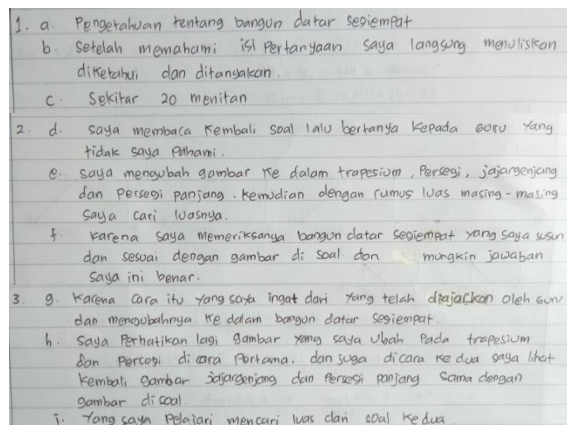 1. a. Pengetahuan tentang bangun datar segiempat
b. Setelah memahami isi Pertanyaan saya langsung menuliskan
diketahui dan ditanyakan.
c. Sekitar 20 menitan
2. d. saya membaca Kembali soal lalu bertanya kepada guru yang
tidak saya Pahami.
e. saya mengubah gambar ke dalam trapesium, Persegi, jajargenjang
dan persegi panjang. Kemudian dengan rumus luas masing-masing
saya cari luasnya.
f. Karena saya memeriksanya bangun datar segiempat yang saya susun
dan sesuai dengan gambar di soal dan mungkin jawaban
saya ini benar.
3. g. Karena cara itu yang saya ingat dari yang telah diajarkan oleh guru
dan mengubahnya ke dalam bangun datar segiempat.
h. Saya Perhatikan lagi gambar yang saya ubah Pada trapesium
dan Persegi di cara Pertama. dan juga dicara ke dua saya lihat
kembali gambar jajargenjang dan Persegi panjang sama dengan
gambar di soal
i. Yang saya Pelajari mencari luas dari soal kedua